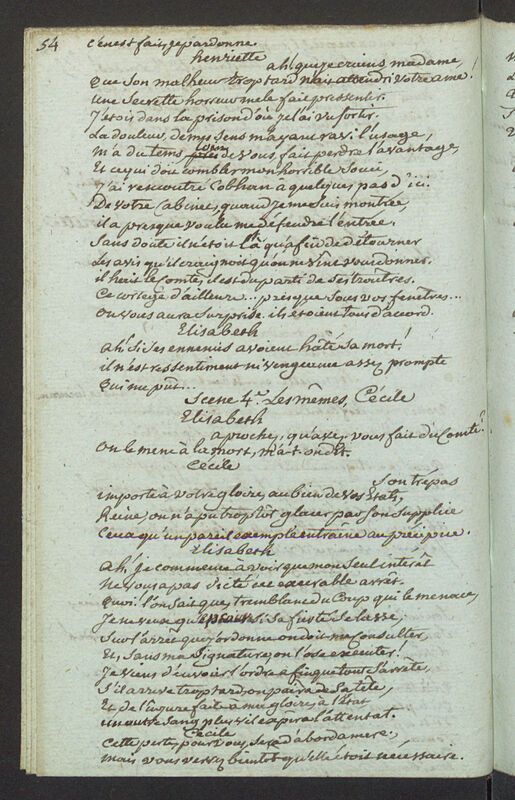 54
c'en est fait, je pardonne.
henriette
ah! que je crains madame,
que son malheur trop tard n'ait attendri votre ame!
une secrette horreur me le fait pressentir.
J'etois dans la prison d'où je l'ai vu sortir.
La douleur, de mes sens m'ayant ravi l'usage,
m'a du tems, loin de vous, fait perdre l'avantage,
Et ce qui doit combler mon horrible souci,
J'ai rencontré Cobhan à quelques pas d'ici.
De votre Cabinet, quand je me suis montrée,
il a presque voulu me défendre l'entrée.
Sans doute il n'étoit là qu'afin de détourner
Les avis qu'il craignoit qu'on ne vînt vous donner.
il hait le Comte, il est du parti de ses traîtres.
Ce cortege d'ailleurs... presque sous vos fenêtres...
On vous aura surprise. ils étoient tous d'accord.
Elisabeth
ah! si ses ennemis avoient hâté sa mort!
il n'est ressentiment ni vengeance assez prompte
qui me pût...
Scene 4.e Les mêmes, Cécile
Elisabeth
aproche, qu'avez-vous fait du Comte?
On le mene à la mort, m'a-t-on dit.
Cécile
Son trépas
importe à votre gloire, au bien de vos Etats,
Reine, on n'a pu trop tôt glacer par son supplice
Ceux qu'un pareil exemple entraîne au précipice.
Elisabeth
ah! je commence à voir que mon seul intérêt
ne vous a pas dicté cet execrable arrêt.
quoi! l'on sait que, tremblant du Coup qui le menace,
Je ne veux qu'essaier si sa fierté se lasse,
Sur l'arrêt que j'ordonne on doit me consulter,
Et, sans ma signature, on l'ose executer!
Je viens d'envoier l'ordre afin que tout s'arrête,
S'il arrive trop tard, on paira de sa tête,
Et de l'injure faite à ma gloire, à l'Etat
un autre sang plus vil expira l'attentat.
Cecile
Cette perte, pour vous, sera d'abord amere;
mais vous verrez bientôt qu'elle étoit nécessaire.